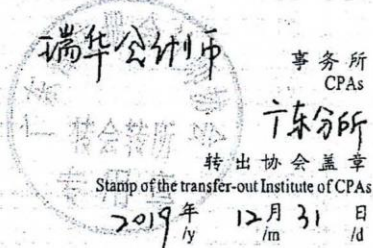 瑞华会计师
事务所
CPAs
广东分所
转出协会盖章
Stamp of the transfer-out Institute of CPAs
2019年 12月 31 日
/y /m /d